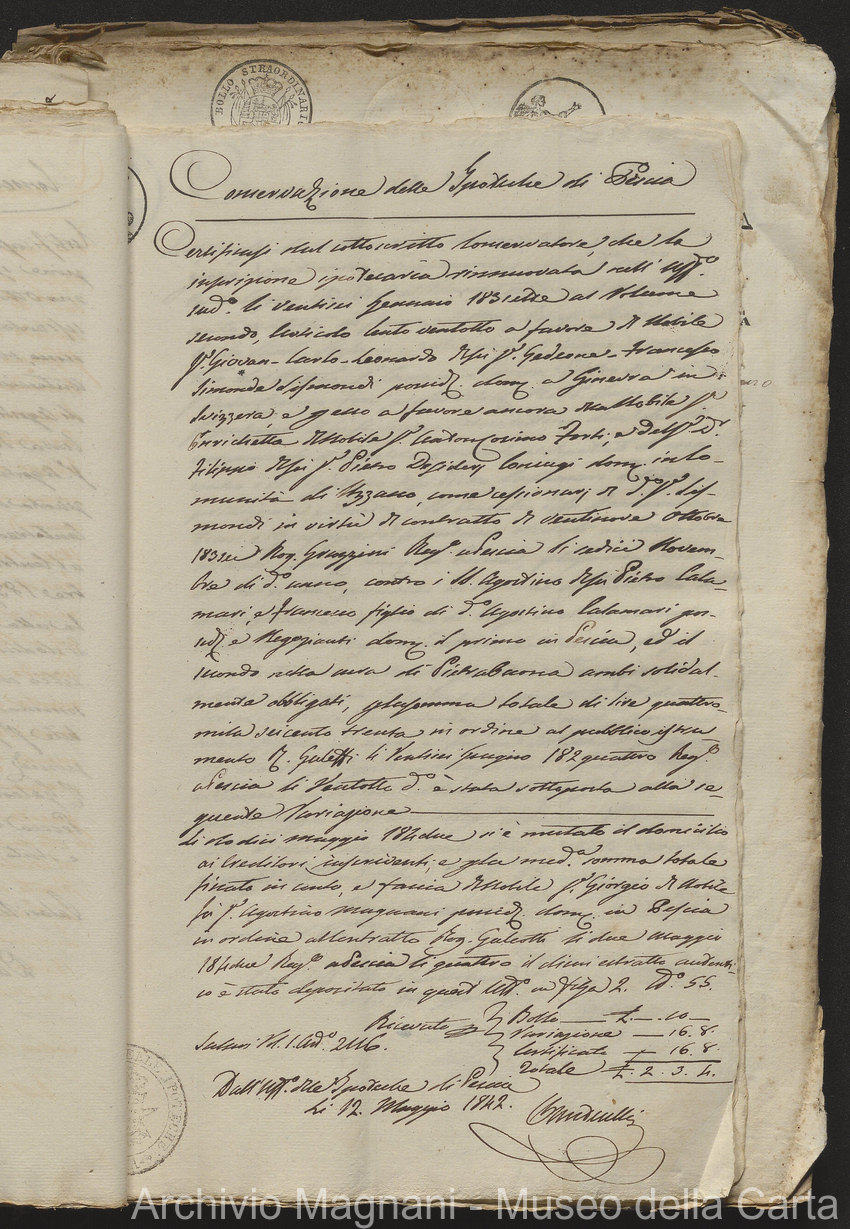 BOLLO STRAORDINARIO
Conservazione delle Ipoteche di Pescia
Certificasi dal sottoscritto Conservatore, che la
inscrizione ipotecaria rinnuovata nell' Uff.o
sud.o li ventisei Gennaio 183 al Volume
secondo, Articolo Cento ventotto a favore di Nobile
S.r Giovan-Carlo-Leonardo del fu S.r Gedeone-Francesco
Simonde Sismondi possid. dom. a Ginevra in
Svizzera, e a favore ancora della Nobile S.ra
Enrichetta del Nobile S.r Anton Cosimo Forti, e dell' S.r D.r
Filippo del fu S.r Pietro Desiderj Coniugi dom. in Co-
munità di Uzzano, come cessionarj di d.o S.r Sis-
mondi in virtù di contratto di ventinove Ottobre
183sei Rog. Grazzini Reg.o a Pescia li sedici Novem-
bre di d.o anno, contro i SS. Agostino del fu Pietro Cala-
mari, e Francesco figlio di d.o Agostino Calamari pos-
sid. e Negozianti dom. il primo in Pescia, ed il
secondo nella cura di Pietrabuona ambi solidal-
mente obbligati, p la somma totale di lire quattro-
mila seicento trenta in ordine al pubblico istru-
mento R. Galeotti li Ventisei Giugno 182quattro Reg.o
a Pescia li Ventotto d.o è stata sottoposta alla se-
guente Variazione
Li dodici maggio 184due si è mutato il domicilio
ai Creditori inscriventi, e p la med.a somma totale
fissato in conto, e faccia del Nobile S.r Giorgio del Nobile
fu S.r Agostino Magnani possid. dom. in Pescia
in ordine al contratto Rog. Galeotti li due maggio
184due Reg.o a Pescia li quattro il di cui estratto autenti-
co è stato depositato in quest' Uff.o in filza 2. N.o 55.
Ricevuto Bollo £ -. 10 -
Variazione - 16. 8.
Salarj Vol. 1. Ard.o 2116. Certificato - 16. 8.
Totale £. 2. 3. 4.
Dall' Uff.o delle Ipoteche di Pescia
Li 12. Maggio 1842.
DELLE IPOTECHE
Archivio Magnani - Museo della Carta